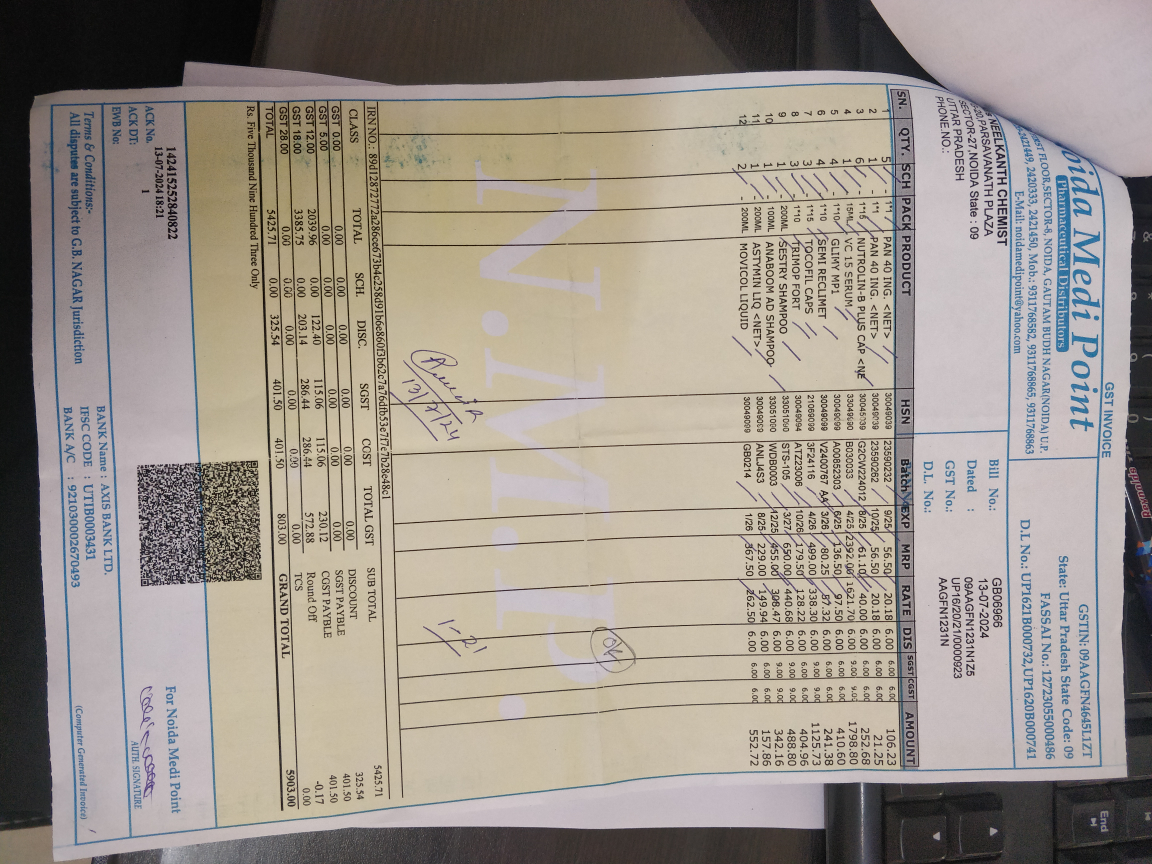 GST INVOICE
oida Medi Point
Pharmaceutical Distributors
ST FLOOR,SECTOR-8, NOIDA, GAUTAM BUDH NAGAR(NOIDA) U.P.
2421449, 2420333, 2421450, Mob.: 9311768582, 9311768865, 9311768863
E-Mail: noidamedipoint@yahoo.com
GSTIN: 09AAGFN4645L1ZT
State: Uttar Pradesh State Code: 09
FASSAI No.: 12723055000486
D.I. No.: UP1621B000732,UP1620B000741
NEELKANTH CHEMIST
PARSAVANATH PLAZA
SECTOR-27,NOIDA State : 09
UTTAR PRADESH
PHONE NO.:
Bill No.: GB06966
Dated : 13-07-2024
GST No.: 09AAGFN1231N1Z5
D.L. No.: UP16/20/21/0000923
AAGFN1231N
SN. QTY. SCH PACK PRODUCT HSN Batch EXP MRP RATE DIS SGST CGST AMOUNT
1 5 - 1*1 PAN 40 ING. <NET> 30049039 23590232 9/25 56.50 20.18 6.00 6.00 6.00 106.23
2 1 - 1*1 PAN 40 ING. <NET> 30049039 23590262 10/25 56.50 20.18 6.00 6.00 6.00 21.25
3 6 - 1*15 NUTROLIN-B PLUS CAP <NE G2CW224012 8/25 61.10 40.00 6.00 6.00 6.00 252.68
4 1 - 15ML VC 15 SERUM 33049990 B030033 4/25 2392.00 1621.70 6.00 9.00 9.00 1798.80
5 4 - 1*10 GLIMY MP1 30049099 A00852303 6/25 136.50 97.50 6.00 6.00 6.00 410.60
6 4 - 1*10 SEMI RECLIMET 30049099 V2400767 3/26 80.25 57.32 6.00 6.00 6.00 241.38
7 3 - 1*15 TOCOFIL CAPS 21069099 3F24116 4/26 499.00 338.30 6.00 9.00 9.00 1125.73
8 3 - 1*10 TRIMOP FORT 30049094 ATZ23006 10/26 179.50 128.22 6.00 6.00 6.00 404.96
9 1 - 200ML SESTRY SHAMPOO 33051090 STS-105 3/27 650.00 440.68 6.00 9.00 9.00 488.80
10 1 - 100ML ANABOOM AD SHAMPOO 33051010 WDB0003 12/25 455.00 308.47 6.00 9.00 9.00 342.16
11 1 - 200ML ASTYMIN LIQ <NET> 30049099 ANLI4S3 8/25 229.00 149.94 6.00 6.00 6.00 157.86
12 2 - 200ML MOVICOL LIQUID 30049099 GB0214 1/26 367.50 262.50 6.00 6.00 6.00 552.72
N.M.P.
OK
13/7/24
1-21
IRN NO.: 89d12872772a286ce673b4c258d91b6e860f3b62c7a76dfb53e7f7c7b28e48c1
CLASS TOTAL SCH. DISC. SGST CGST TOTAL GST
GST 0.00 0.00 0.00 0.00 0.00 0.00
GST 5.00 0.00 0.00 0.00 0.00 0.00
GST 12.00 2039.96 0.00 122.40 115.06 115.06 230.12
GST 18.00 3385.75 0.00 203.14 286.44 286.44 572.88
GST 28.00 0.00 0.00 0.00 0.00 0.00 0.00
TOTAL 5425.71 0.00 325.54 401.50 401.50 803.00
SUB TOTAL 5425.71
DISCOUNT 325.54
SGST PAYBLE 401.50
CGST PAYBLE 401.50
Round Off -0.17
TCS 0.00
GRAND TOTAL 5903.00
Rs. Five Thousand Nine Hundred Three Only
ACK No. 142415252840822
ACK DT: 13-07-2024 18:21
EWB No: 1
For Noida Medi Point
AUTH. SIGNATURE
Terms & Conditions:-
All disputes are subject to G.B. NAGAR Jurisdiction
BANK Name : AXIS BANK LTD.
IFSC CODE : UTIB0003431
BANK A/C : 921030002670493
(Computer Generated Invoice)
End